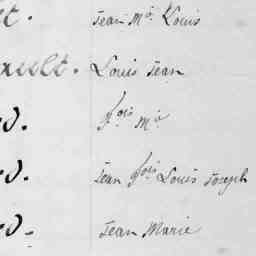 t. Jean Mie Louis
ault. Louis Jean
d. fois Mie
d. Jean fois Louis Joseph
d. Jean Marie